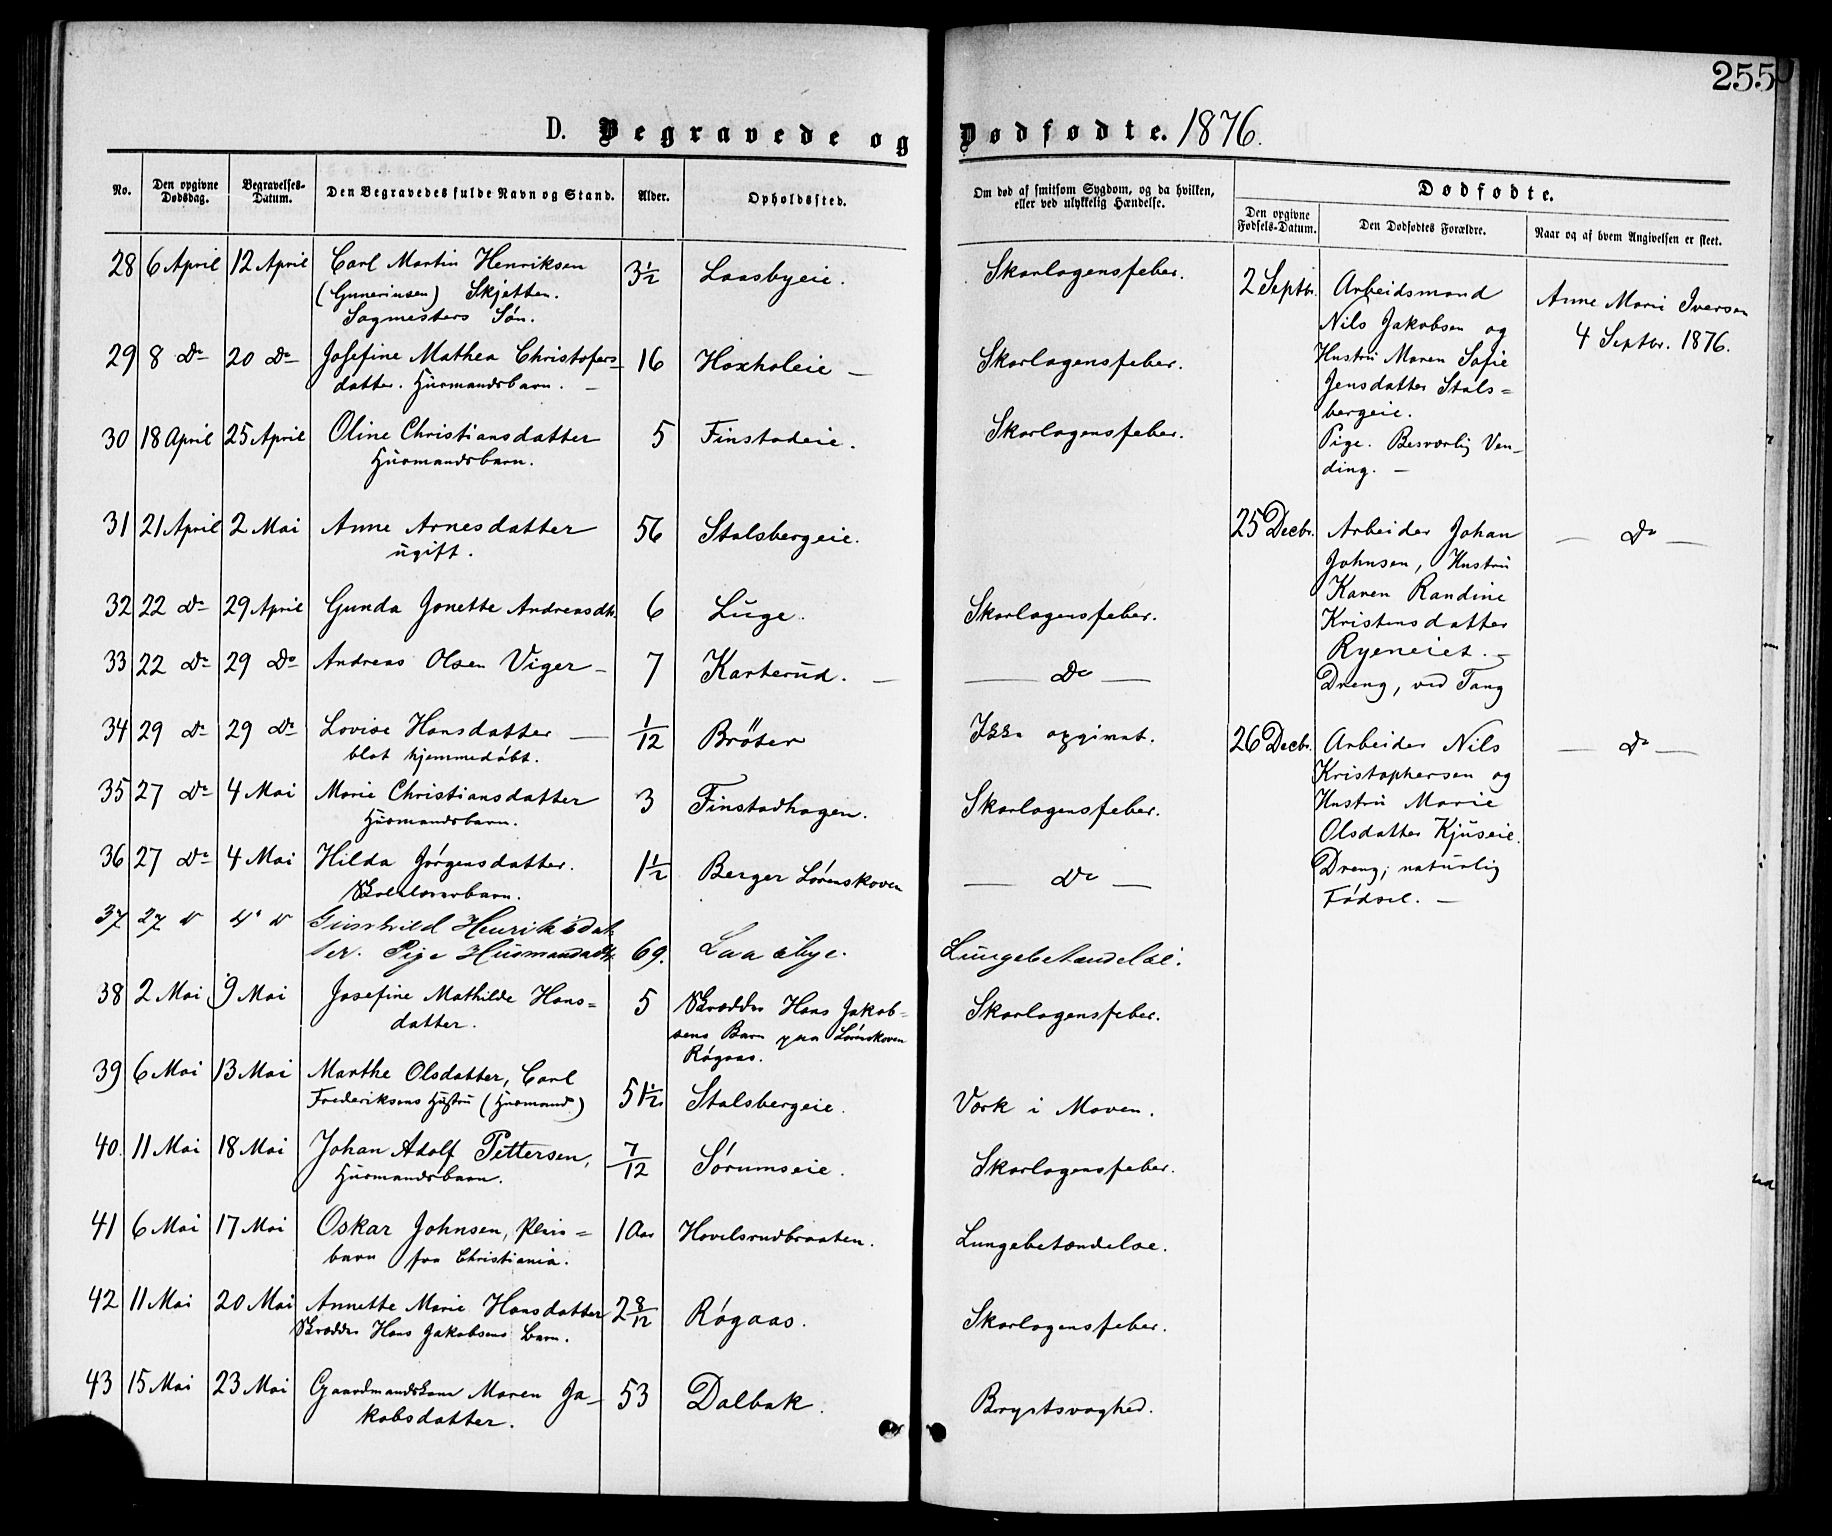 255
D. Begravede og Dødfødte. 1876.
No. Den opgivne Dødsdag. Begravelses-Datum. Den Begravedes fulde Navn og Stand. Alder. Opholdssted. Om død af smitsom Sygdom, og da hvilken, eller ved ulykkelig Hændelse.
Dødfødte.
Den opgivne Fødsels-Datum. Den Dødfødtes Forældre. Naar og af hvem Angivelsen er skeet.
28 6 April 12 April Carl Martin Henriksen 3½ Laasbyeie. Skarlagensfeber.
(Gunerinsen) Skjetten.
Sagmesters Søn.
29 8 Do 20 Do Josefine Mathea Christofers- 16 Hoxholeie — Skarlagensfeber.
datter. Husmandsbarn. —
30 18 April 25 April Oline Christiansdatter 5 Finstadeie. Skarlagensfeber.
Husmandsbarn.
31 21 April 2 Mai Anne Arnesdatter 56 Stalsbergeie.
ugift.
32 22 Do 29 April Gunda Jonette Andreasdtr. 6 Luge. Skarlagensfeber.
33 22 Do 29 Do Andreas Olsen Viger — 7 Karterud. — — Do —
34 29 Do 29 Do Lovise Hansdatter — 1/12 Brøter Ikke opgivet.
blot hjemmedøbt.
35 27 Do 4 Mai Marie Christiansdatter 3 Finstadhagen. Skarlagensfeber.
Husmandsbarn.
36 27 Do 4 Mai Hilda Jørgensdatter. 1½ Berger Lørenskoven — Do —
Skolelærerbarn.
37 27 Do 4 Do Gunhild Henriksdat-
ter. Pige Husmandsdtr. 69. Laasbye. Lungebetændelse.
38 2 Mai 9 Mai Josefine Mathilde Hans= 5 Skrædder Hans Jakob= Skarlagensfeber.
datter. sens Barn paa Lørenskoven
Røgaas.
39 6 Mai 13 Mai Marthe Olsdatter, Carl
Frederiksens Hustru (Husmand) 51½ Stalsbergeie. Værk i Maven.
40. 11 Mai 18 Mai Johan Adolf Pettersen, 7/12 Sørumseie. Skarlagensfeber.
Husmandsbarn.
41 6 Mai 17 Mai Oskar Johnsen, Pleie= 1 Aar Hovelsrudbraaten. Lungebetændelse.
barn fra Christiania.
42 11 Mai 20 Mai Annette Marie Hansdatter 2 8/12 Røgaas. Skarlagensfeber.
Skrædder Hans Jakobsens Barn.
43 15 Mai 23 Mai Gaardmandskone Maren Ja- 53 Dalbak. Brystsvaghed.
kobsdatter.
2 Septbr. Arbeidsmand Anne Marie Iversen
Nils Jakobsen og 4 Septbr. 1876.
Hustru Maren Sofie
Jensdatter Stals=
bergeie.
Pige. Besværlig Ven-
ding. —
25 Decbr. Arbeider Johan — Do —
Johnsen, Hustru
Karen Randine
Kristensdatter
Ryeneiet. —
Dreng, ved Tang
26 Decbr. Arbeider Nils — Do —
Kristophersen og
Hustru Marie
Olsdatter Kjuseie.
Dreng; naturlig
Fødsel. —